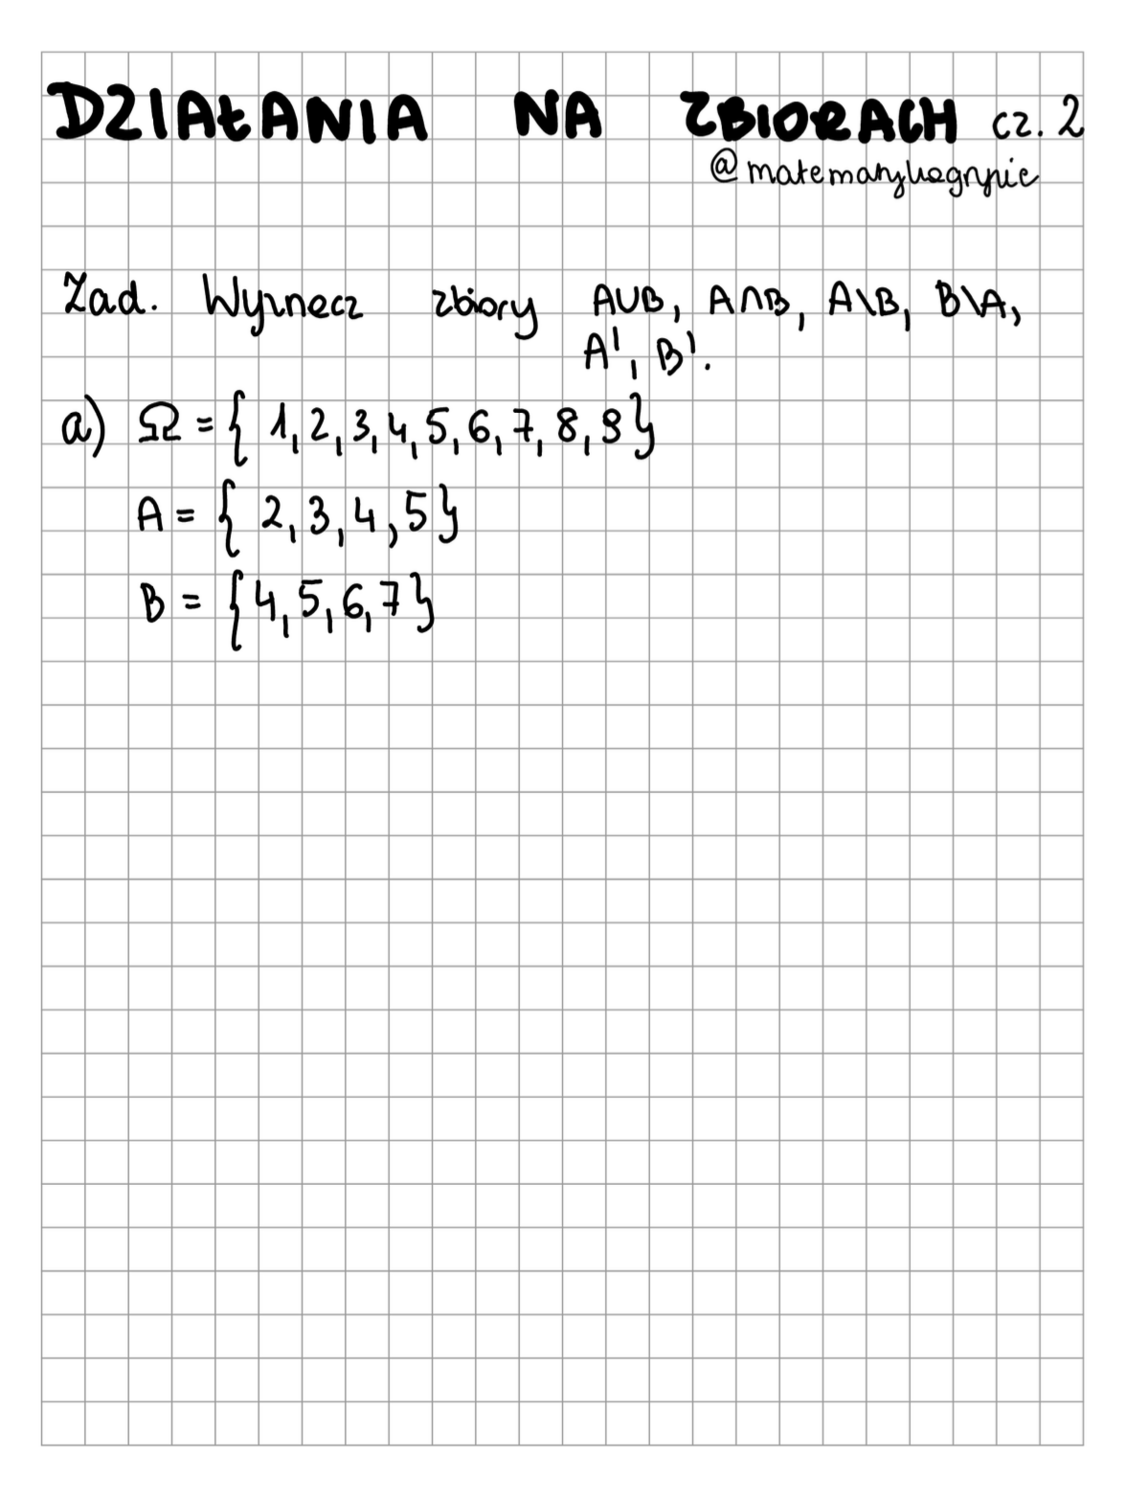 DZIAŁANIA NA ZBIORACH cz. 2
@matematykagryzie
Zad. Wyznacz zbiory A∪B, A∩B, A\B, B\A,
A', B'.
a) Ω = { 1, 2, 3, 4, 5, 6, 7, 8, 9}
A = { 2, 3, 4, 5}
B = {4, 5, 6, 7}